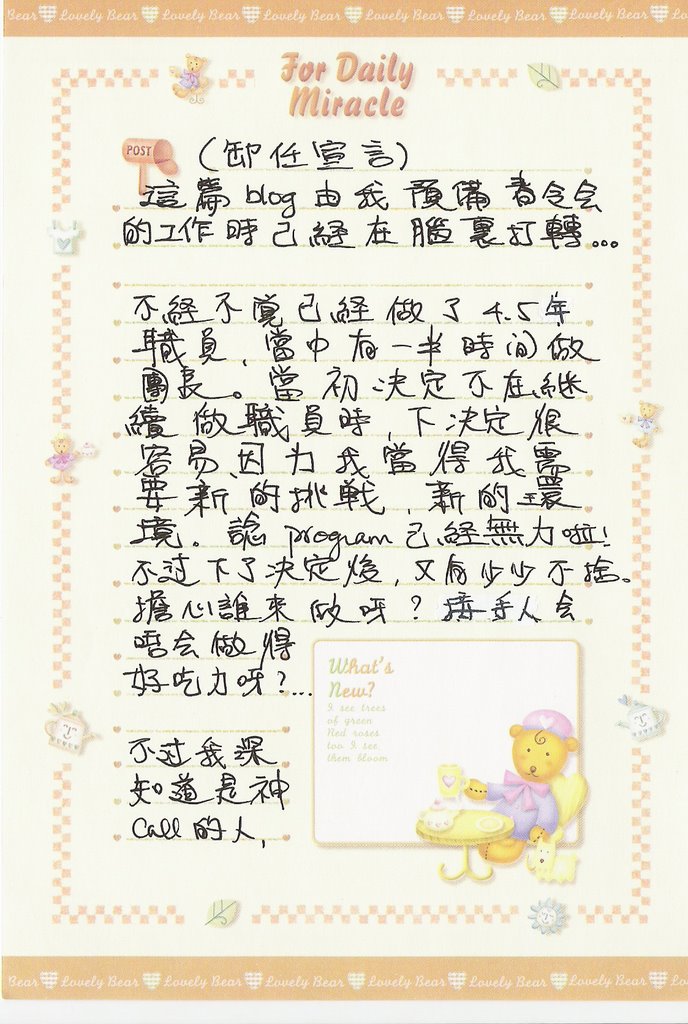 Bear Lovely Bear Lovely Bear Lovely Bear Lovely Bear Lovely Bear Lovely Bear Lo
For Daily
Miracle
POST
(卸任宣言)
這篇blog由我預備省令会
的工作時己経在腦裏打轉...
不経不覚己経做了4.5年
職員,當中有一半時间做
團長。當初決定不在継
續做職員時,下決定很
容易,因为我當得我需
要新的挑戦,新的環
境。諗program己経無力啦!
不过下了決定後,又有少少不捨。
擔心誰來做呀?接手人会
唔会做得
好吃力呀?...
What's
New?
I see trees
of green
Ned roses
too I see,
them bloom
不过我深
知道是神
Call的人,
Bear Lovely Bear Lovely Bear Lovely Bear Lovely Bear Lovely Bear Lovely Bear Lo